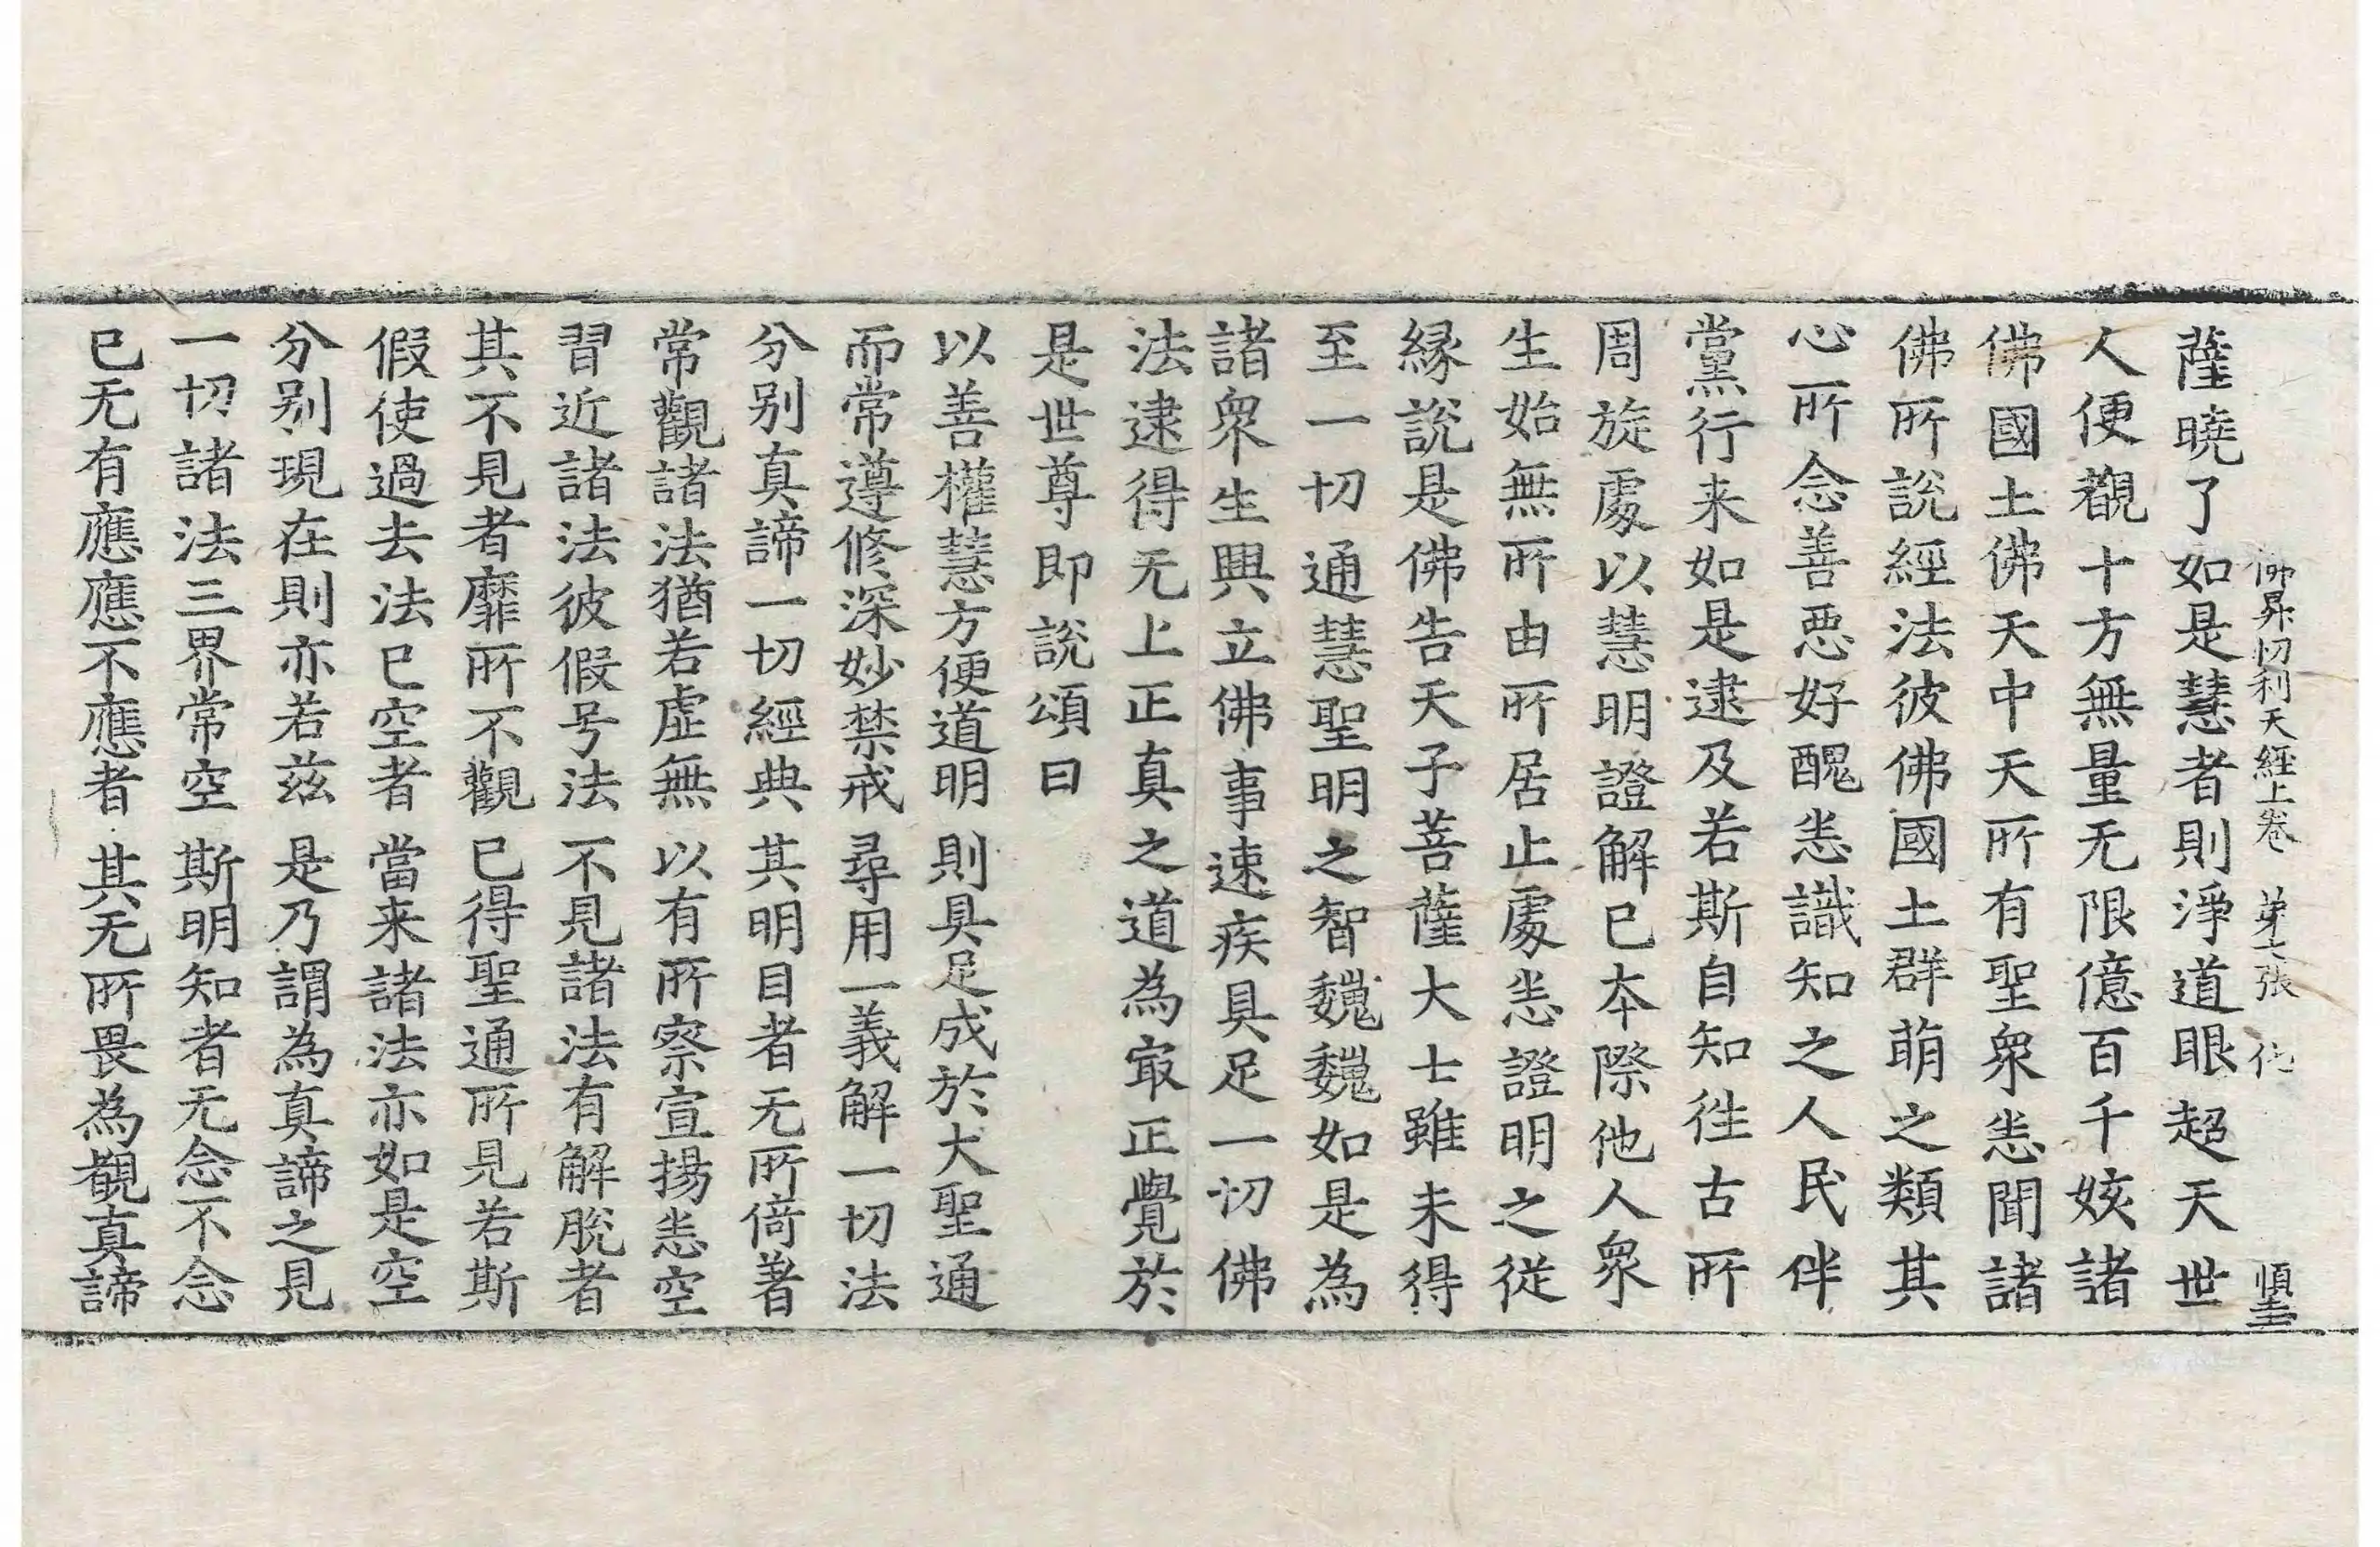 佛昇忉利天經上卷 第七張 化
薩曉了如是慧者則淨道眼超天世
人便觀十方無量无限億百千姟諸
佛國土佛天中天所有聖衆悉聞諸
佛所說經法彼佛國土群萌之類其
心所念善惡好醜悉識知之人民伴
黨行来如是逮及若斯自知徃古所
周旋處以慧明證解已本際他人衆
生始無所由所居止處悉證明之從
縁說是佛告天子菩薩大士雖未得
至一切通慧聖明之智巍巍如是為
諸衆生興立佛事速疾具足一切佛
法逮得无上正真之道為冣正覺於
是世尊即說頌曰
以善權慧方便道明 則具足成於大聖通
而常遵修深妙禁戒 尋用一義解一切法
分别真諦一切經典 其明目者无所倚著
常觀諸法猶若虛無 以有所察宣揚悉空
習近諸法彼假号法 不見諸法有解脫者
其不見者靡所不觀 已得聖通所見若斯
假使過去法已空者 當来諸法亦如是空
分别現在則亦若兹 是乃謂為真諦之見
一切諸法三界常空 斯明知者无念不念
已无有應應不應者 其无所畏為觀真諦